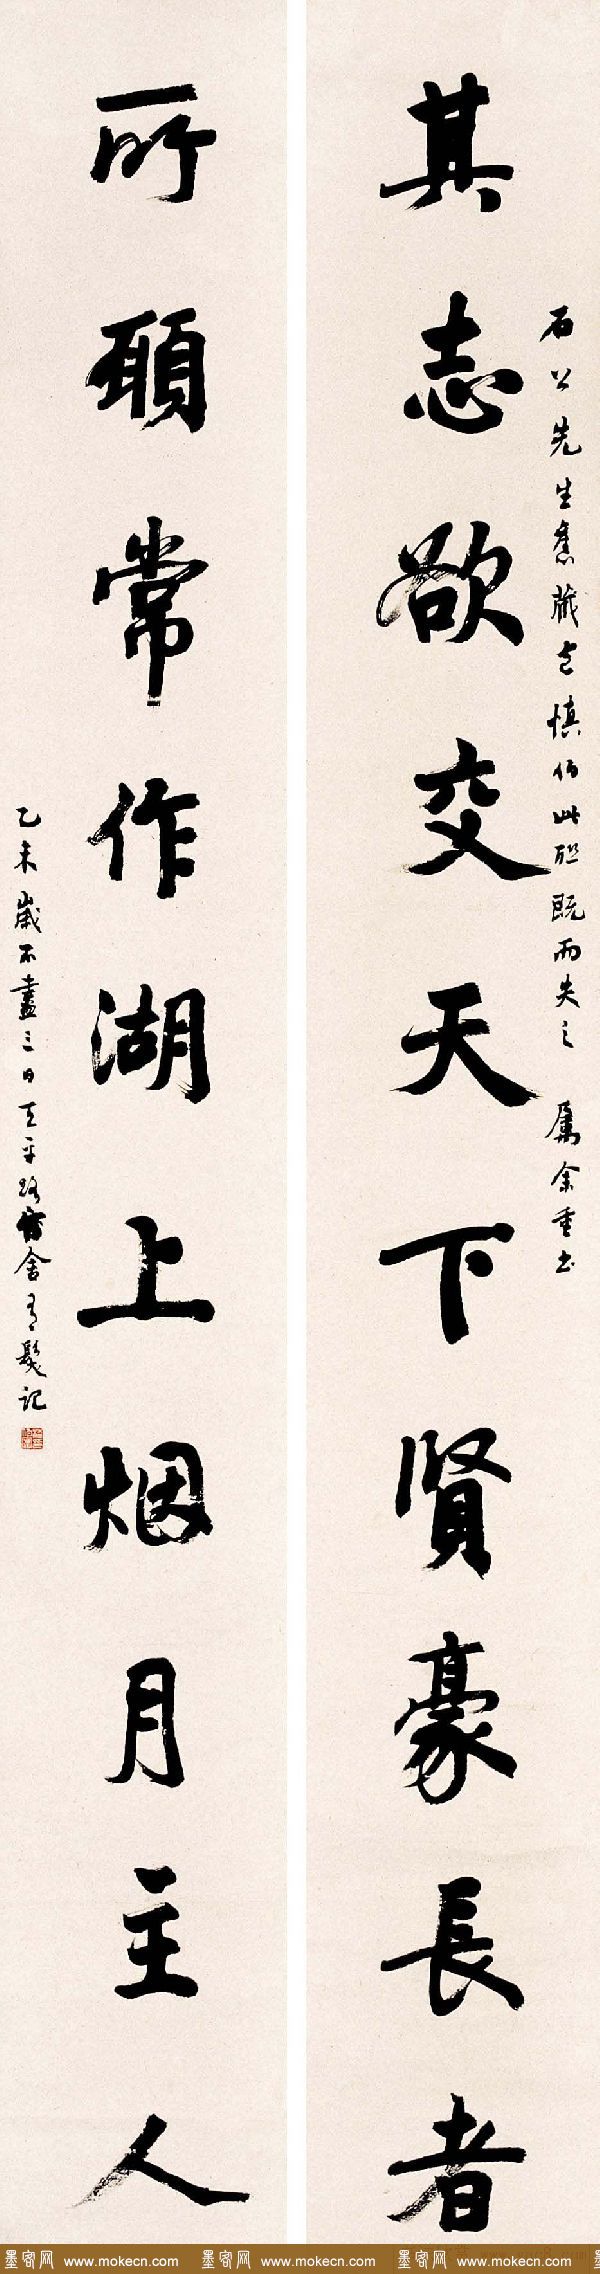 石公先生舊藏包慎伯此聯既而失之 屬余重書
其志欲交天下賢豪長者
所願常作湖上烟月主人
乙未歲不盡三日天平路舍記
墨客网 www.mokecn.com 墨客网 www.mokecn.com 墨客网 www.mokecn.com